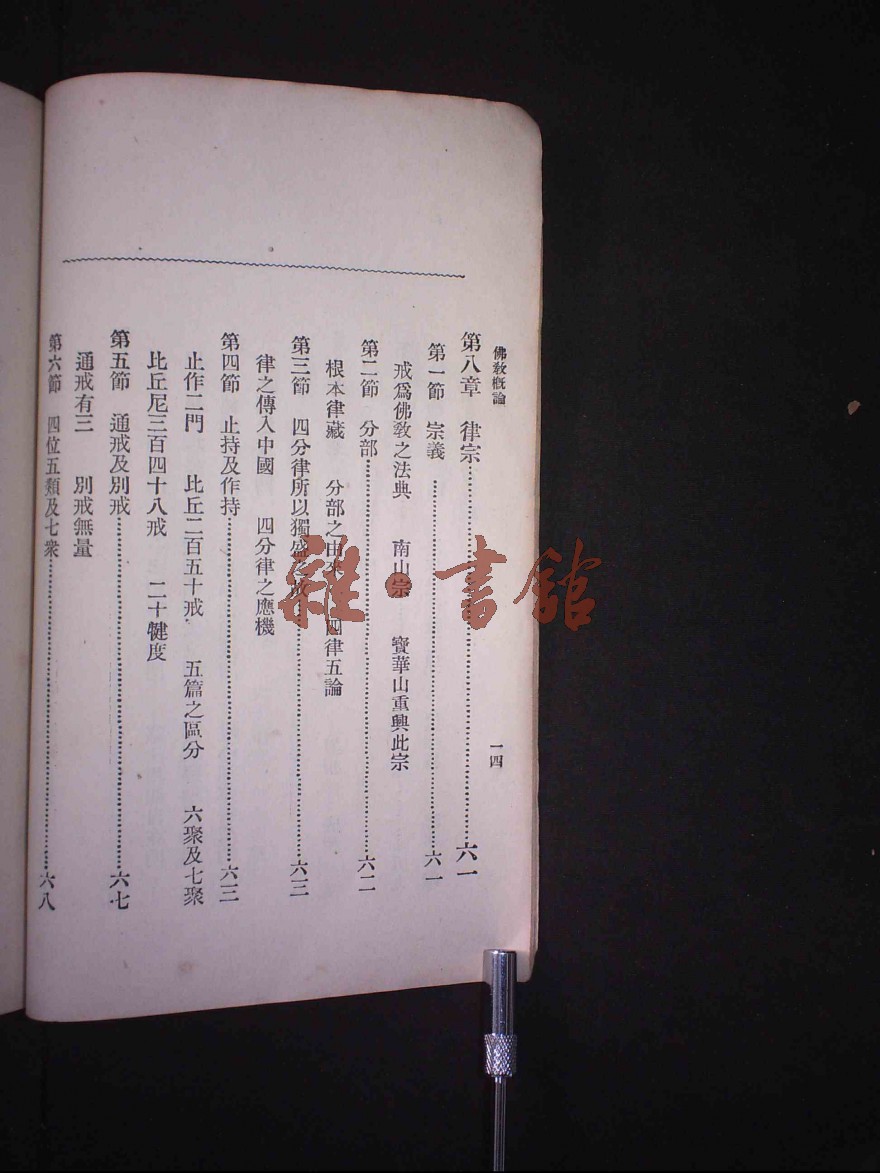 佛教概論
一四
第八章 律宗……六一
第一節 宗義……六一
戒爲佛教之法典 南山宗 寶華山重興此宗
第二節 分部……六二
根本律藏 分部之由來 四律五論
第三節 四分律所以獨盛之故……六三
律之傳入中國 四分律之應機
第四節 止持及作持……六三
止作二門 比丘二百五十戒 五篇之區分 六聚及七聚
比丘尼三百四十八戒 二十犍度
第五節 通戒及別戒……六七
通戒有三 別戒無量
第六節 四位五類及七衆……六八
雜·書館